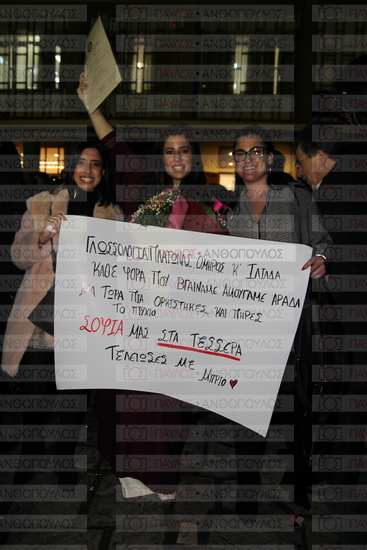 ΓΛΩΣΣΟΛΟΓΙΑ ΠΛΑΤΩΝΑΣ ΟΜΗΡΟΣ Κ' ΙΛΙΑΔΑ
ΚΑΘΕ ΦΟΡΑ ΠΟΥ ΒΓΑΙΝΑΜΕ ΑΚΟΥΓΑΜΕ ΑΡΑΔΑ
ΜΑ ΤΩΡΑ ΠΙΑ ΟΡΚΙΣΤΗΚΕΣ ΚΑΙ ΠΗΡΕΣ
ΤΟ ΠΤΥΧΙΟ
ΣΟΦΙΑ ΜΑΣ ΣΤΑ ΤΕΣΣΕΡΑ
ΤΕΛΕΙΩΣΕΣ ΜΕ ΜΠΡΙΟ
ΠΑΥΛΟΣ • ΑΝΘΟΠΟΥΛΟΣ